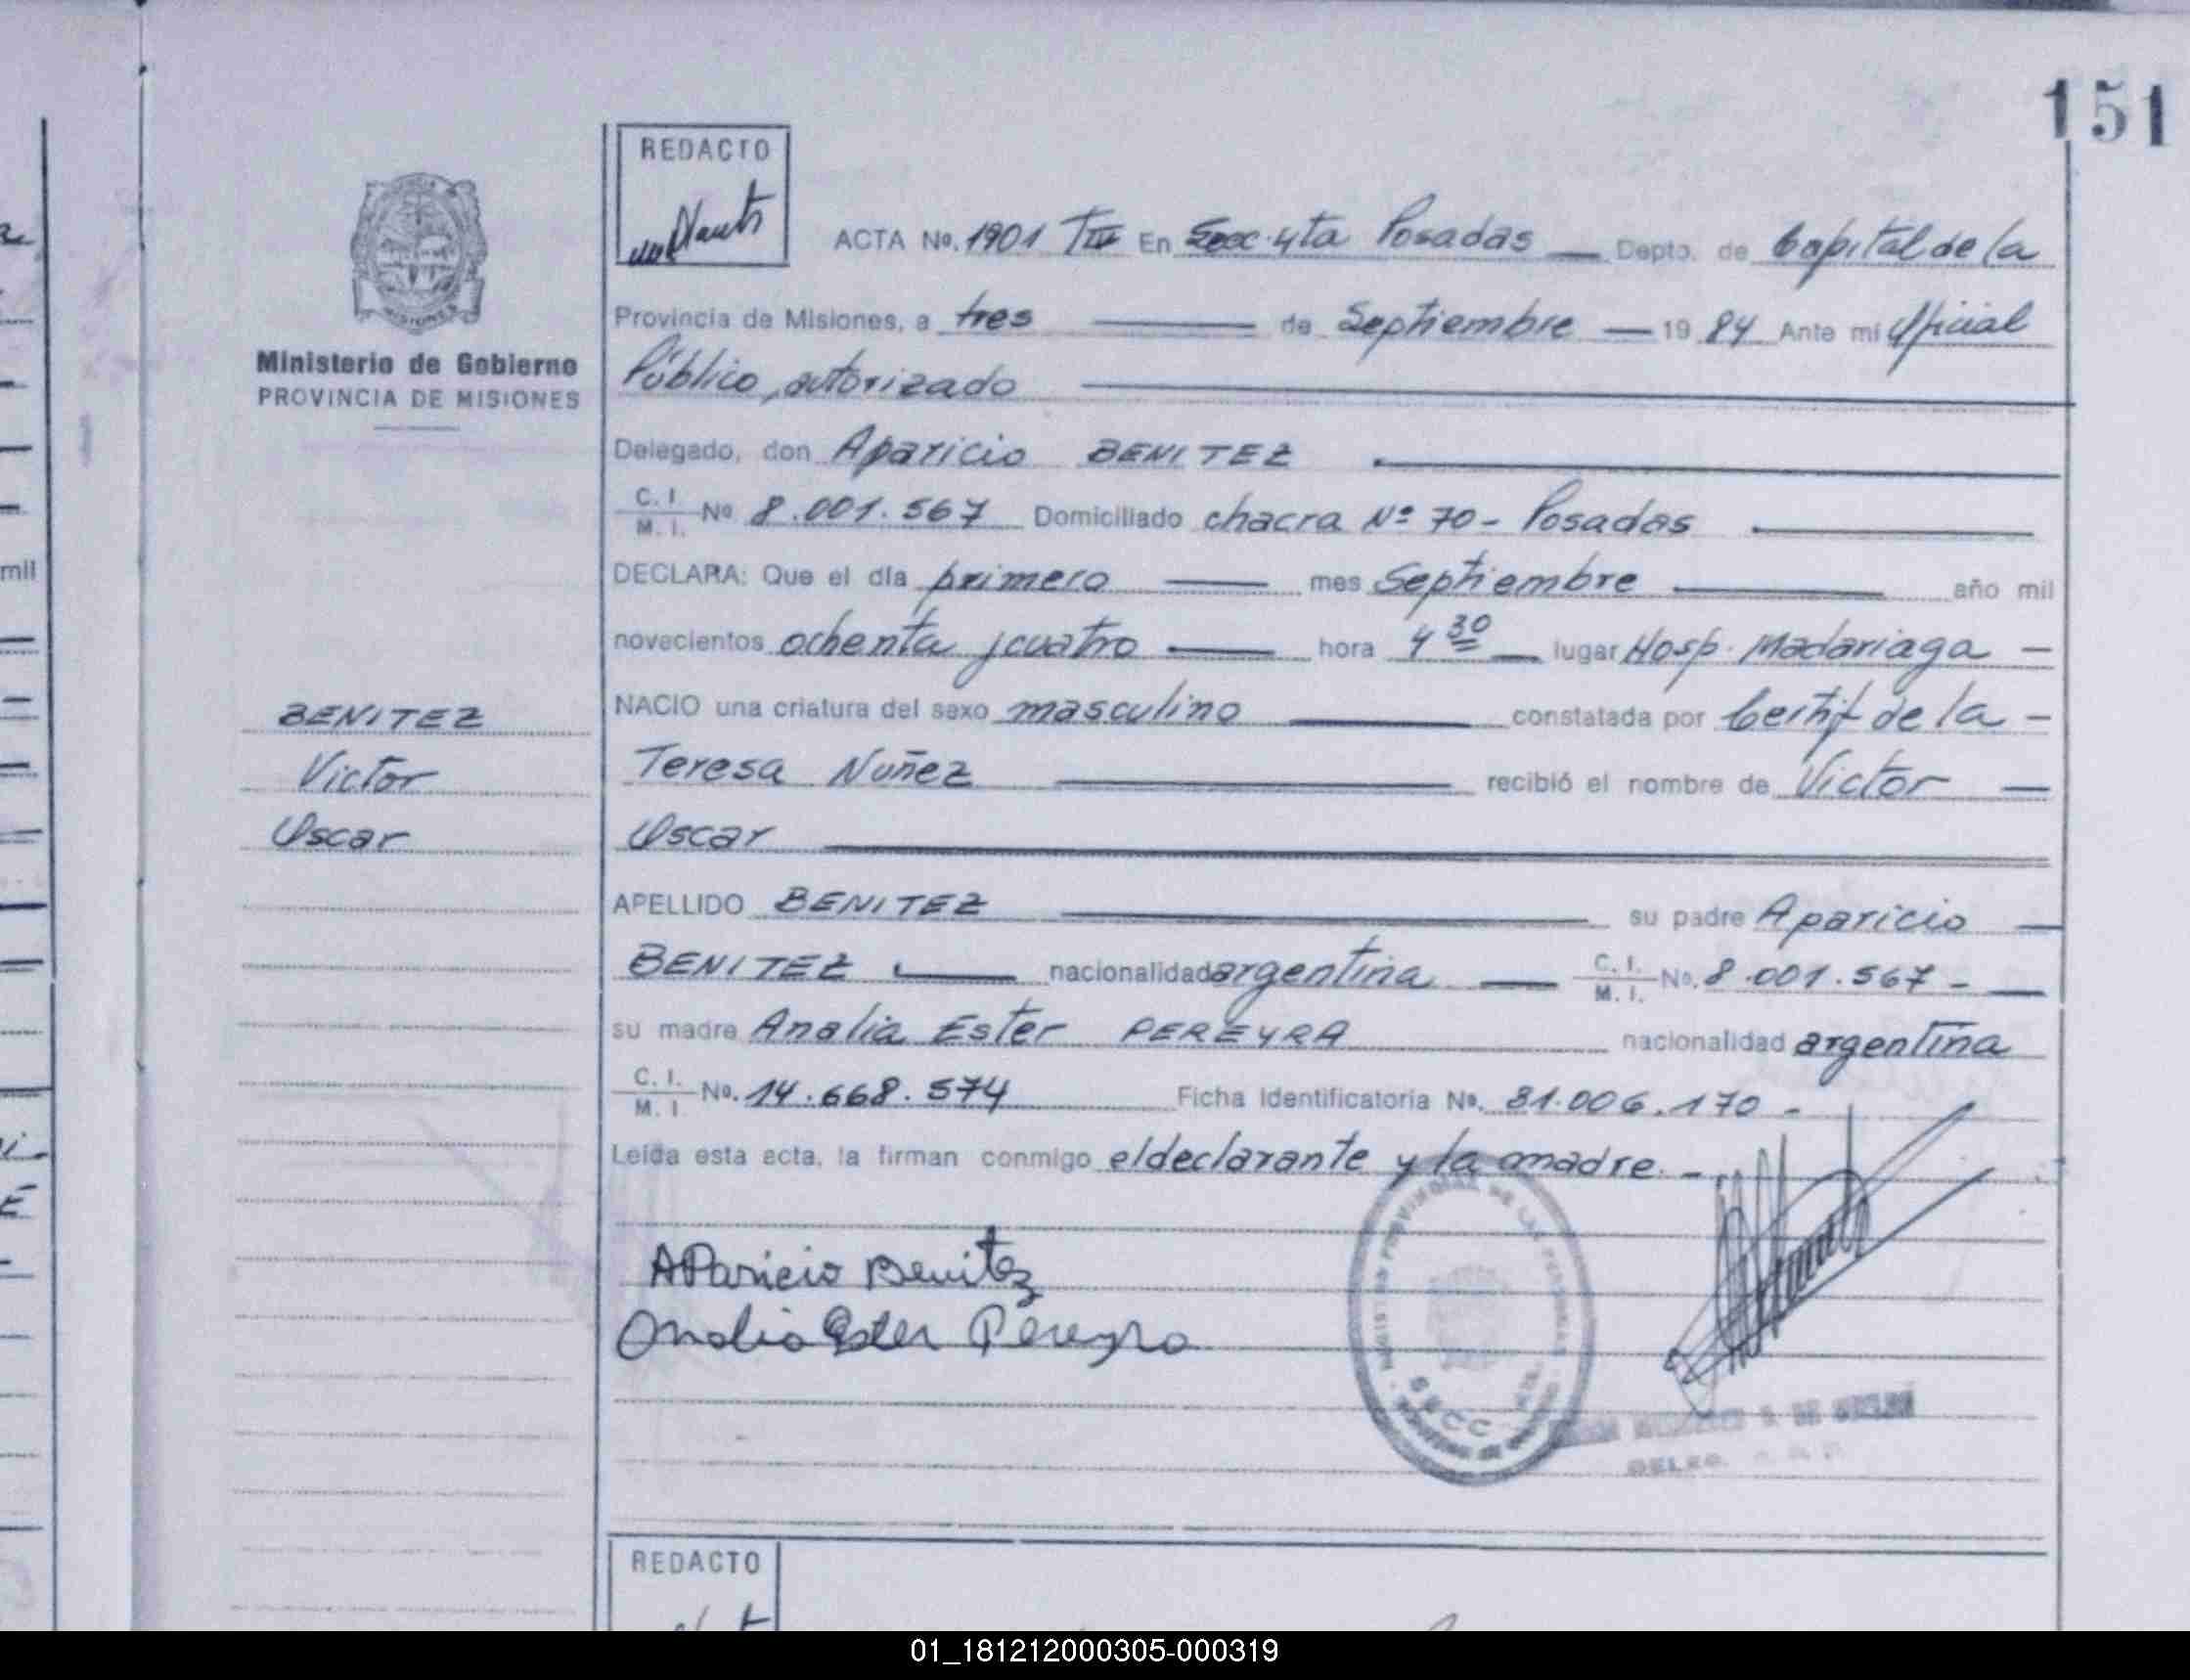 151
REDACTO
ACTA No. 1901 TIII En Secc. 4ta Posadas Depto. de Capital de la
Provincia de Misiones, a tres de Septiembre 19 84 Ante mi Oficial
Ministerio de Gobierno
PROVINCIA DE MISIONES
Público, autorizado
Delegado, don Aparicio BENITEZ
C. I. M. I. No 8.001.567 Domiciliado chacra Nº 70 - Posadas
DECLARA: Que el día primero mes Septiembre año mil
novecientos ochenta y cuatro hora 4 30 lugar Hosp. Madariaga -
NACIO una criatura del sexo masculino constatada por Certif de la -
Teresa Nuñez recibió el nombre de Victor
Oscar
BENITEZ
Victor
Oscar
APELLIDO BENITEZ su padre Aparicio
BENITEZ nacionalidad argentina C. I. M. I. No. 8.001.567 -
su madre Analia Ester PEREYRA nacionalidad argentina
C. I. M. I. No. 14.668.574 Ficha Identificatoria No. 31.006.170 -
Leída esta acta, la firman conmigo el declarante y la madre. -
Aparicio Benitez
Analia Ester Pereyra
SECC
REDACTO
mil
01_181212000305-000319